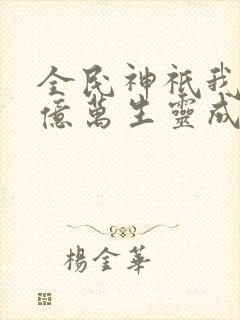 全民神祇我
億萬生靈成
楊金華